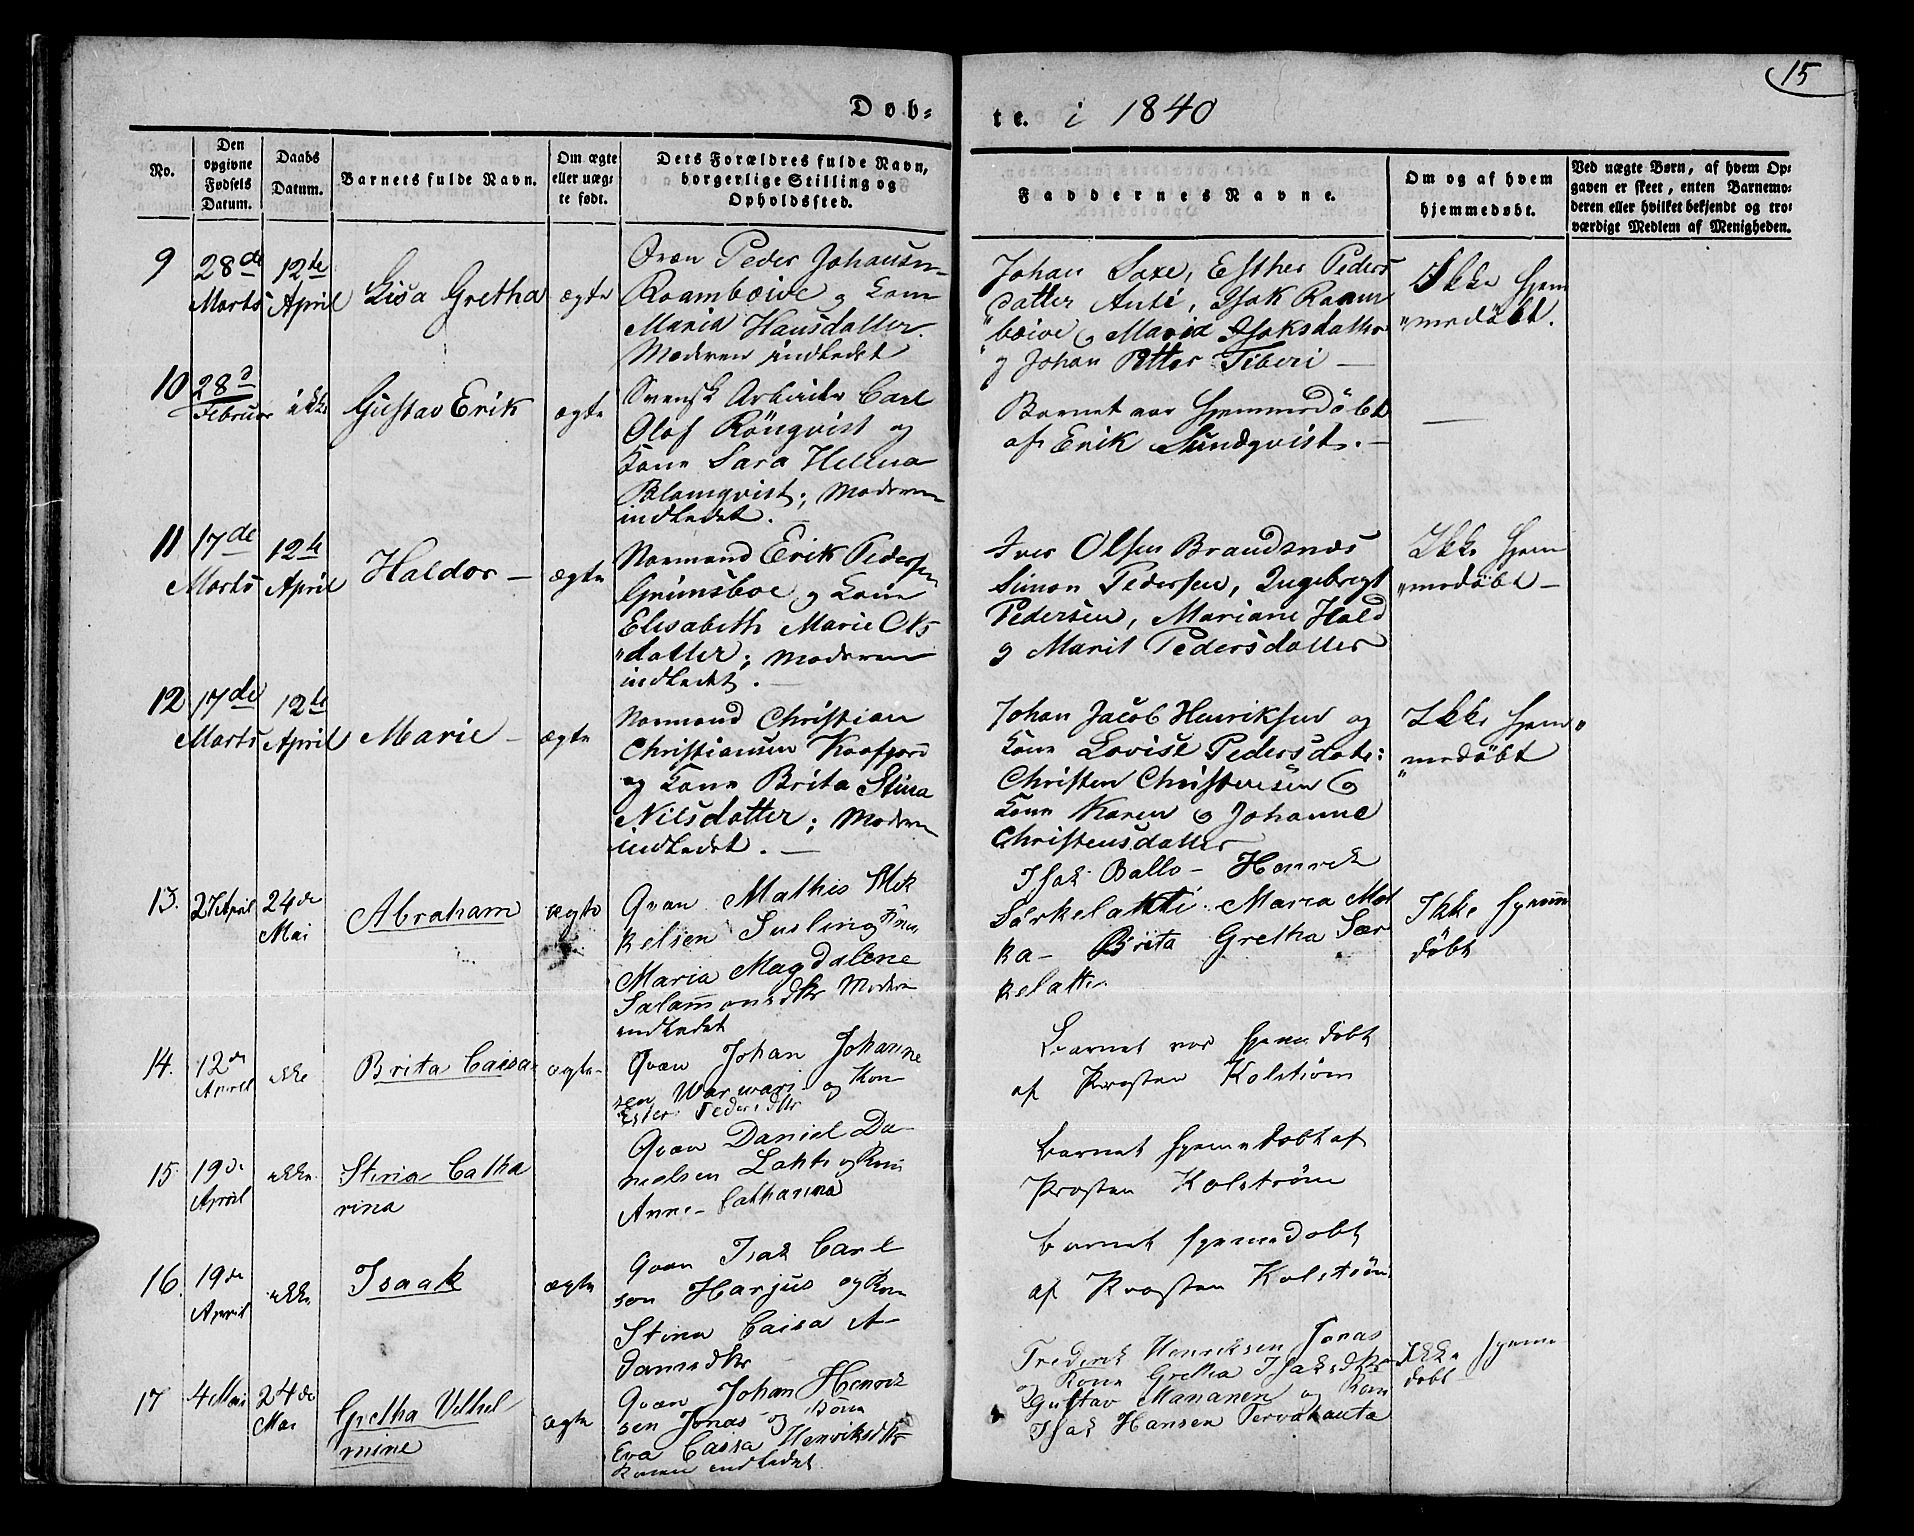 15
Døb-
te. i 1840
No.
Den opgivne Fødsels Datum.
Daabs Datum.
Barnets fulde Navn.
Om ægte eller uæg-
te født.
Dets Forældres fulde Navn,
borgerlige Stilling og
Opholdssted.
Faddernes Navne.
Om og af hvem
hjemmedøbt.
Ved uægte Børn, af hvem Op-
gaven er skeet, enten Barnemo-
deren eller hvilket bekjendt og tro-
værdigt Medlem af Menigheden.
9
28de
Marts
12te
April
Lisa Gretha
ægte
Qvæn Peder Johansen
Raamboive og Kone
Maria Hansdatter.
Moderen indledet
Johan Saxe, Esther Peders
datter Anti, Isak Raam
boive og Maria Isaksdatter
og Johan Petter Tiberi —
Ikke hjem
"medøbt.
10
28d
Februar
ikke
Gustav Erik
ægte
Svensk Arbeider Carl
Olof Rönqvist og
Kone Sara Helena
Blomqvist; Moderen
indledet. —
Barnet var hjemmedøbt
af Erik Sundqvist. —
—
11
17de
Marts
12te
April
Haldor —
ægte
Normand Erik Pedersen
Grimsboe og Kone
Elisabeth Marie Ols
"datter; Moderen
indledet. —
Iver Olsen Brandsnæs
Simon Pedersen, Ingebrigt
Pedersen, Mariane Hald
og Marit Pedersdatter
Ikke hjem
"medøbt —
12
17de
Marts
12te
April
Marie —
ægte
Normand Christian
Christiansen Kaafjord
og Kone Brita Stina
Nilsdatter; Moderen
indledet. —
Johan Jacob Henriksen og
Kone Lovise Pedersdatr:
Christen Christensen og
Kone Karen og Johanne
Christensdatter
Ikke hjem"
"medøbt
13.
27 April
24de
Mai
Abraham
ægte
Qvæn Mathis Mik
kelsen Susling og Kone
Maria Magdalene
Salamonsdtr Modern
indledet
Isak Ballo — Henrik
Särkelahti. Maria Mat
ka — Brita Gretha Sær
kelatti
Ikke hjem
døbt
14.
12de
April
ikke
Brita Caisa
ægte
Qvæn Johan Johanne
sen Warwari og Kon
Ester Pedersdtr
Barnet var hjemedobt
af Prosten Kolström
15.
19de
April
ikke
Stina Catha
rina
Qvæn Daniel Da-
nielsen Lahti og Kone
Anna Catharina
Barnet hjemedobt af
Prosten Kolström
16.
19de
April
ikke
Isaak
ægte
Qvæn Isak Carl
son Harjus og Kone
Stina Caisa A-
damsdtr
Barnet hjemedobt
af Prosten Kolström
17
4 Mai
24de
Mai
Gretha Vilhel
mine
ægte
Qvæn Johan Henrik
sen Jonas og Kone
Eva Caisa Henriksdtr
Konen indledet
Frederik Henriksen Jonas
og Kone Gretha Isaksdtr
Gustav Mananen og Kon
Isak Hansen Pervakanta
Ikke hjeme
dobt